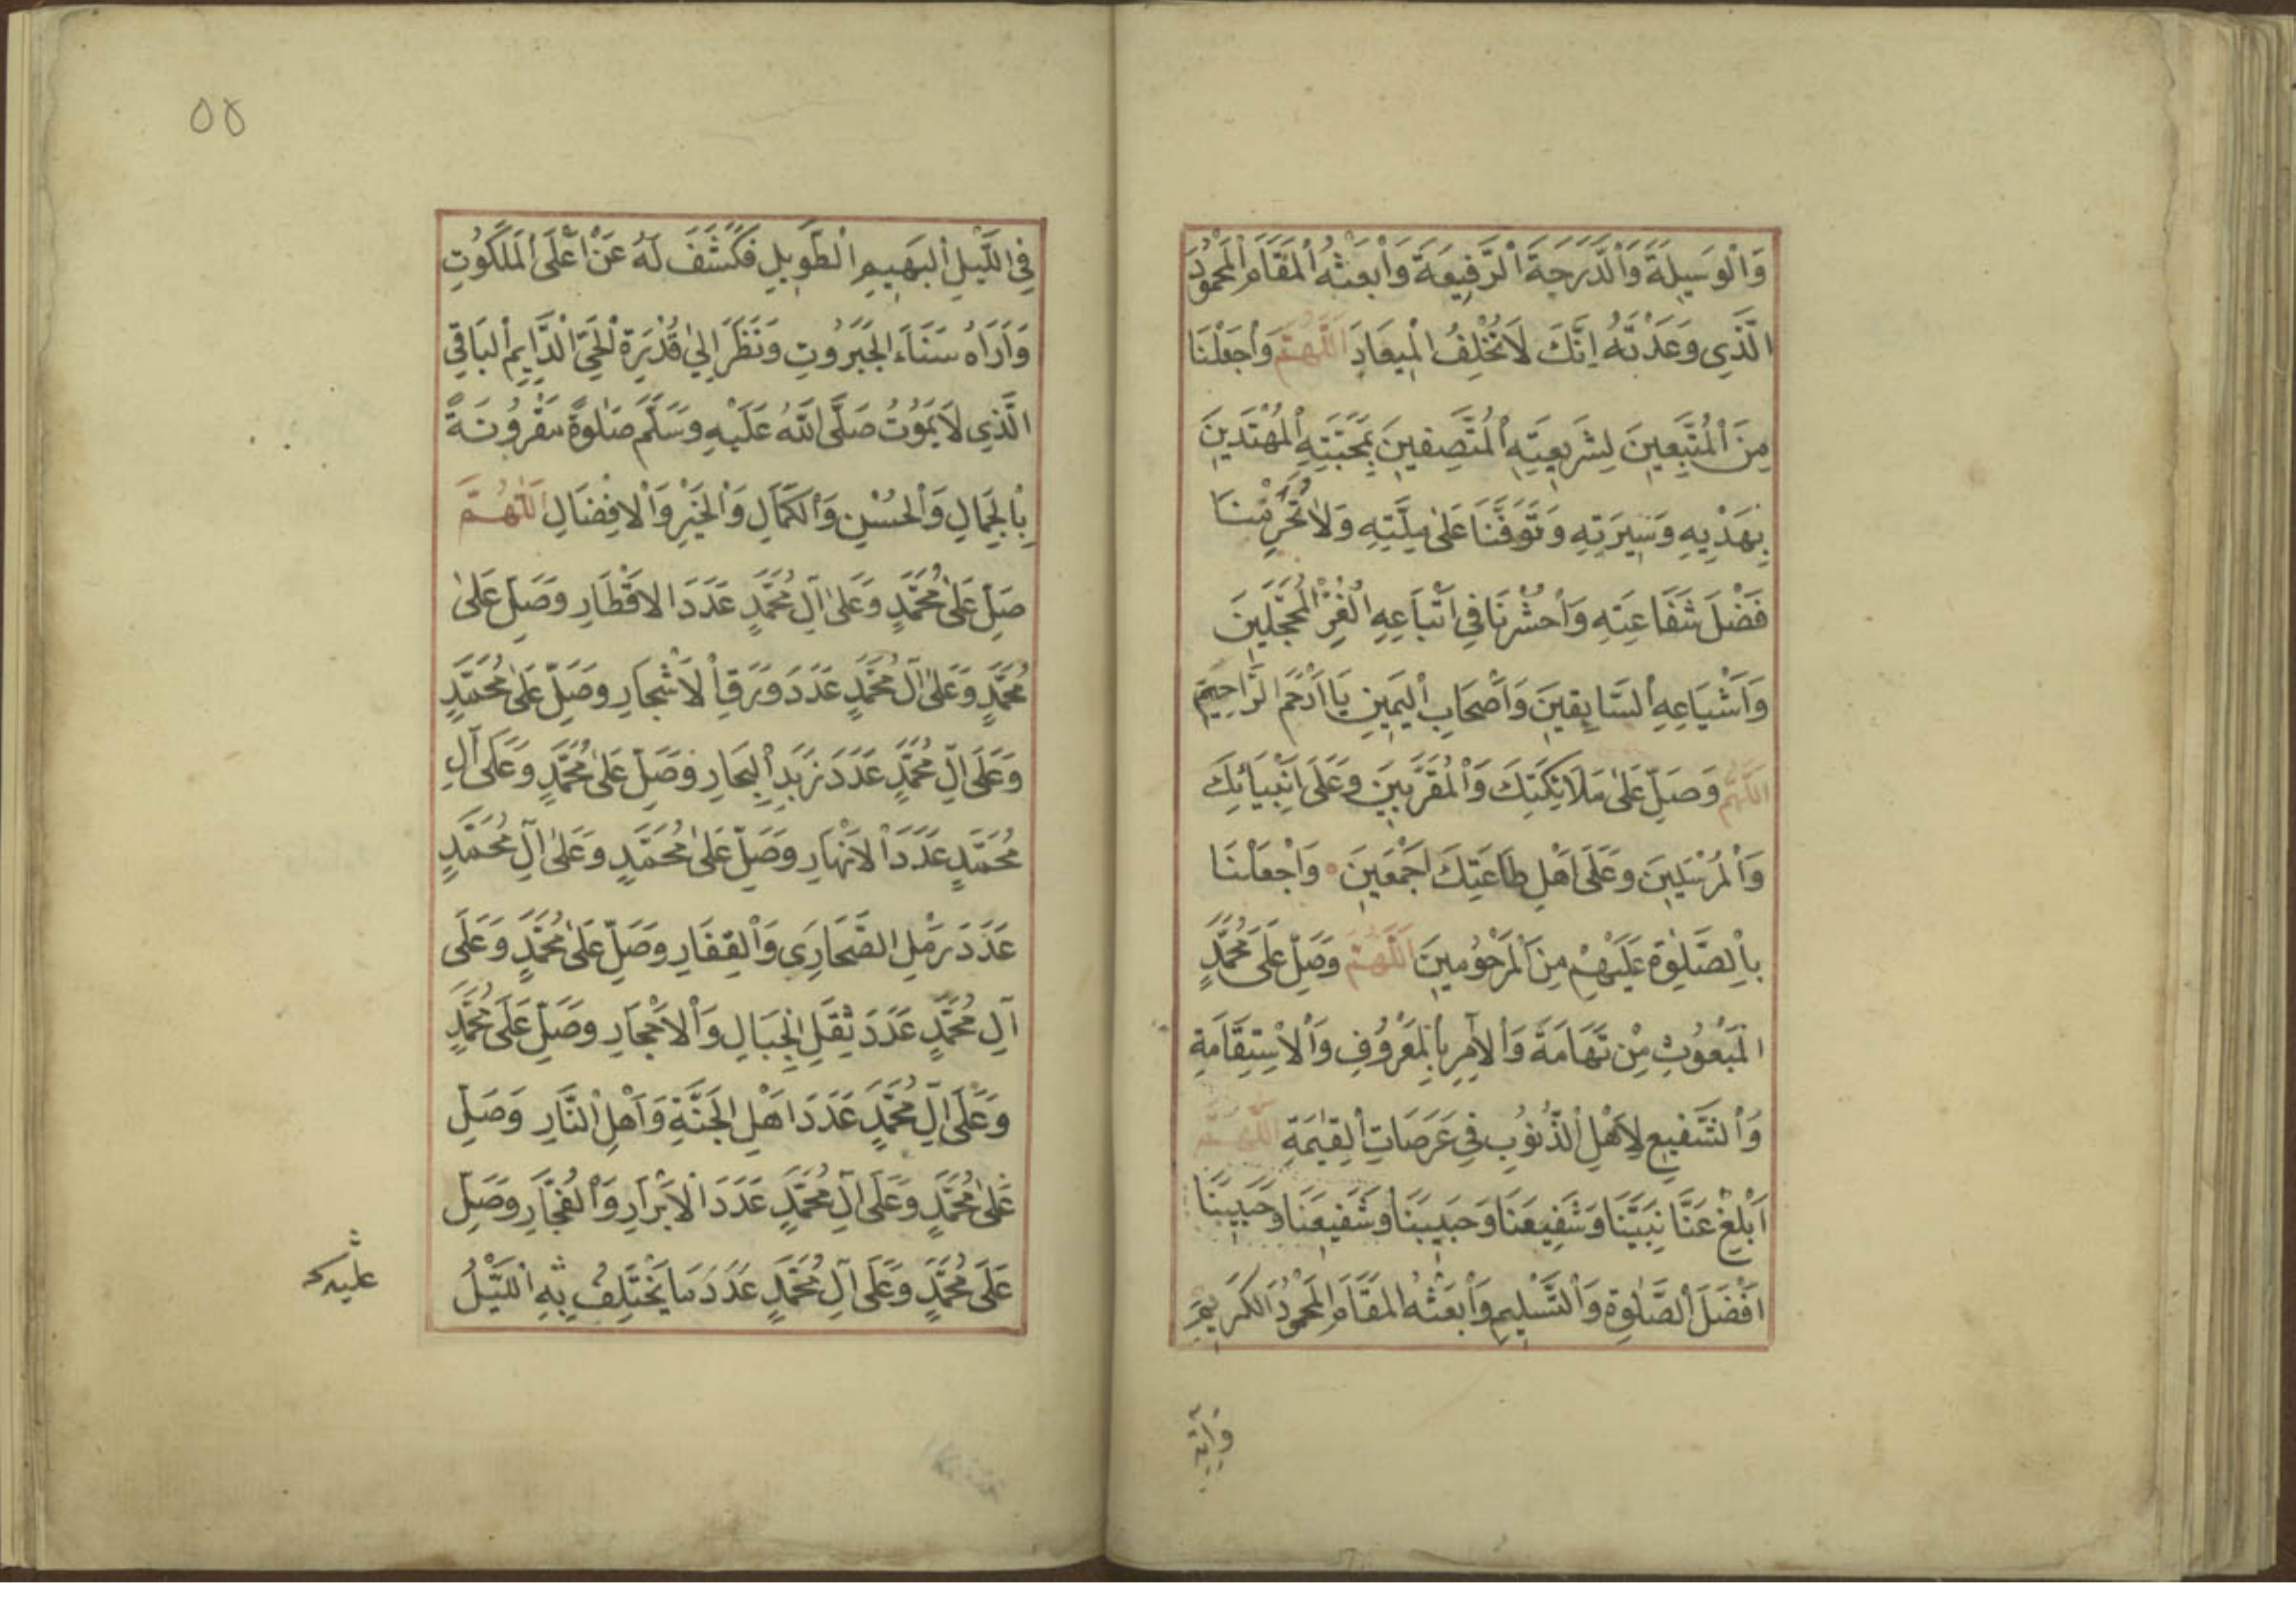 وَالْوَسِيلَةَ وَالدَّرَجَةَ الرَّفِيعَةَ وَابْعَثْهُ الْمَقَامَ الْمَحْمُودَ
الَّذِي وَعَدْتَهُ اِنَّكَ لَا تُخْلِفُ الْمِيعَادِ اَللّٰهُمَّ وَاجْعَلْنَا
مِنَ الْمُتَّبِعِينَ لِشَرِيعَتِهِ الْمُتَّصِفِينَ بِمَحَبَّتِهِ الْمُهْتَدِينَ
بِهَدْيِهِ وَسِيرَتِهِ وَتَوَفَّنَا عَلٰى مِلَّتِهِ وَلَا تُحْرِمْنَا
فَضْلَ شَفَاعَتِهِ وَاحْشُرْنَا فِي اَتْبَاعِهِ الْغُرِّ الْمُحَجَّلِينَ
وَاَشْيَاعِهِ السَّابِقِينَ وَاَصْحَابِ الْيَمِينِ يَا اَرْحَمَ الرَّاحِمِينَ
اَللّٰهُمَّ وَصَلِّ عَلٰى مَلَائِكَتِكَ وَالْمُقَرَّبِينَ وَعَلَى اَنْبِيَائِكَ
وَالْمُرْسَلِينَ وَعَلَى اَهْلِ طَاعَتِكَ اَجْمَعِينَ وَاجْعَلْنَا
بِالصَّلٰوةِ عَلَيْهِمْ مِنَ الْمَرْحُومِينَ اَللّٰهُمَّ وَصَلِّ عَلَى مُحَمَّدٍ
الْمَبْعُوثِ مِنْ تَهَامَةَ وَالْاٰمِرِ بِالْمَعْرُوفِ وَالْاِسْتِقَامَةِ
وَالشَّفِيعِ لِاَهْلِ الذُّنُوبِ فِي عَرَصَاتِ الْقِيٰمَةِ اَللّٰهُمَّ
اَبْلِغْ عَنَّا نَبِيَّنَا وَشَفِيعَنَا وَحَبِيبَنَا وَشَفِيعَنَا وَحَبِيبَنَا
اَفْضَلَ الصَّلٰوةِ وَالتَّسْلِيمِ وَابْعَثْهُ الْمَقَامَ الْمَحْمُودَ الْكَرِيمَ
٥٥
فِي اللَّيْلِ الْبَهِيمِ الطَّوِيلِ فَكَشَفَ لَهُ عَنْ اَعْلَى الْمَلَكُوتِ
وَاَرَاهُ سَنَاءَ الْجَبَرُوتِ وَنَظَرَ اِلٰى قُدْرَةِ الْحَيِّ الدَّايِمِ الْبَاقِي
الَّذِي لَا يَمُوتُ صَلَّى اللّٰهُ عَلَيْهِ وَسَلَّمَ صَلٰوةً مَقْرُونَةً
بِالْجَمَالِ وَالْحُسْنِ وَالْكَمَالِ وَالْخَيْرِ وَالْاِفْضَالِ اَللّٰهُمَّ
صَلِّ عَلٰى مُحَمَّدٍ وَعَلٰى اٰلِ مُحَمَّدٍ عَدَدَ الْاَقْطَارِ وَصَلِّ عَلٰى
مُحَمَّدٍ وَعَلٰى اٰلِ مُحَمَّدٍ عَدَدَ وَرَقِ الْاَشْجَارِ وَصَلِّ عَلٰى مُحَمَّدٍ
وَعَلَى اٰلِ مُحَمَّدٍ عَدَدَ زَبَدِ الْبِحَارِ وَصَلِّ عَلٰى مُحَمَّدٍ وَعَلَى اٰلِ
مُحَمَّدٍ عَدَدَ الْاَنْهَارِ وَصَلِّ عَلٰى مُحَمَّدٍ وَعَلٰى اٰلِ مُحَمَّدٍ
عَدَدَ رَمْلِ الصَّحَارِي وَالْقِفَارِ وَصَلِّ عَلٰى مُحَمَّدٍ وَعَلَى
اٰلِ مُحَمَّدٍ عَدَدَ ثِقَلِ الْجِبَالِ وَالْاَحْجَارِ وَصَلِّ عَلَى مُحَمَّدٍ
وَعَلَى اٰلِ مُحَمَّدٍ عَدَدَ اَهْلِ الْجَنَّةِ وَاَهْلِ النَّارِ وَصَلِّ
عَلٰى مُحَمَّدٍ وَعَلَى اٰلِ مُحَمَّدٍ عَدَدَ الْاَبْرَارِ وَالْفُجَّارِ وَصَلِّ
عَلَى مُحَمَّدٍ وَعَلَى اٰلِ مُحَمَّدٍ عَدَدَ مَا يَخْتَلِفُ بِهِ اللَّيْلُ